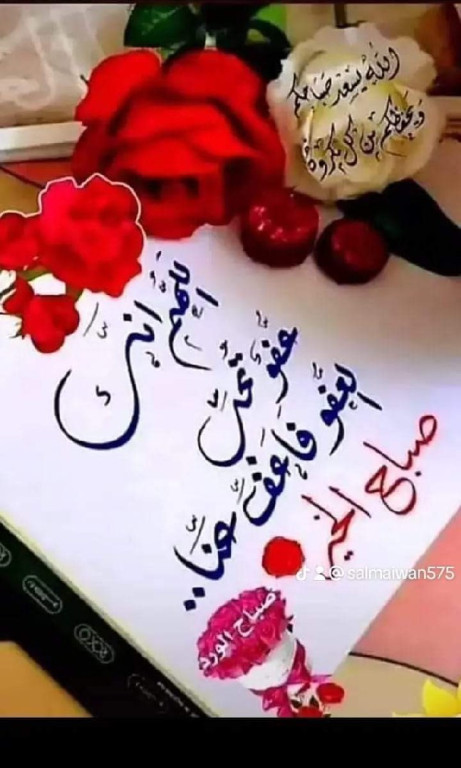 الله يسعد صباحكم
ويحفظكم من كل مكروه
اللهم إنك
عفو تحب
العفو فاعف عنا..
صباح الخير
@salmaiwan575
صباح الورد